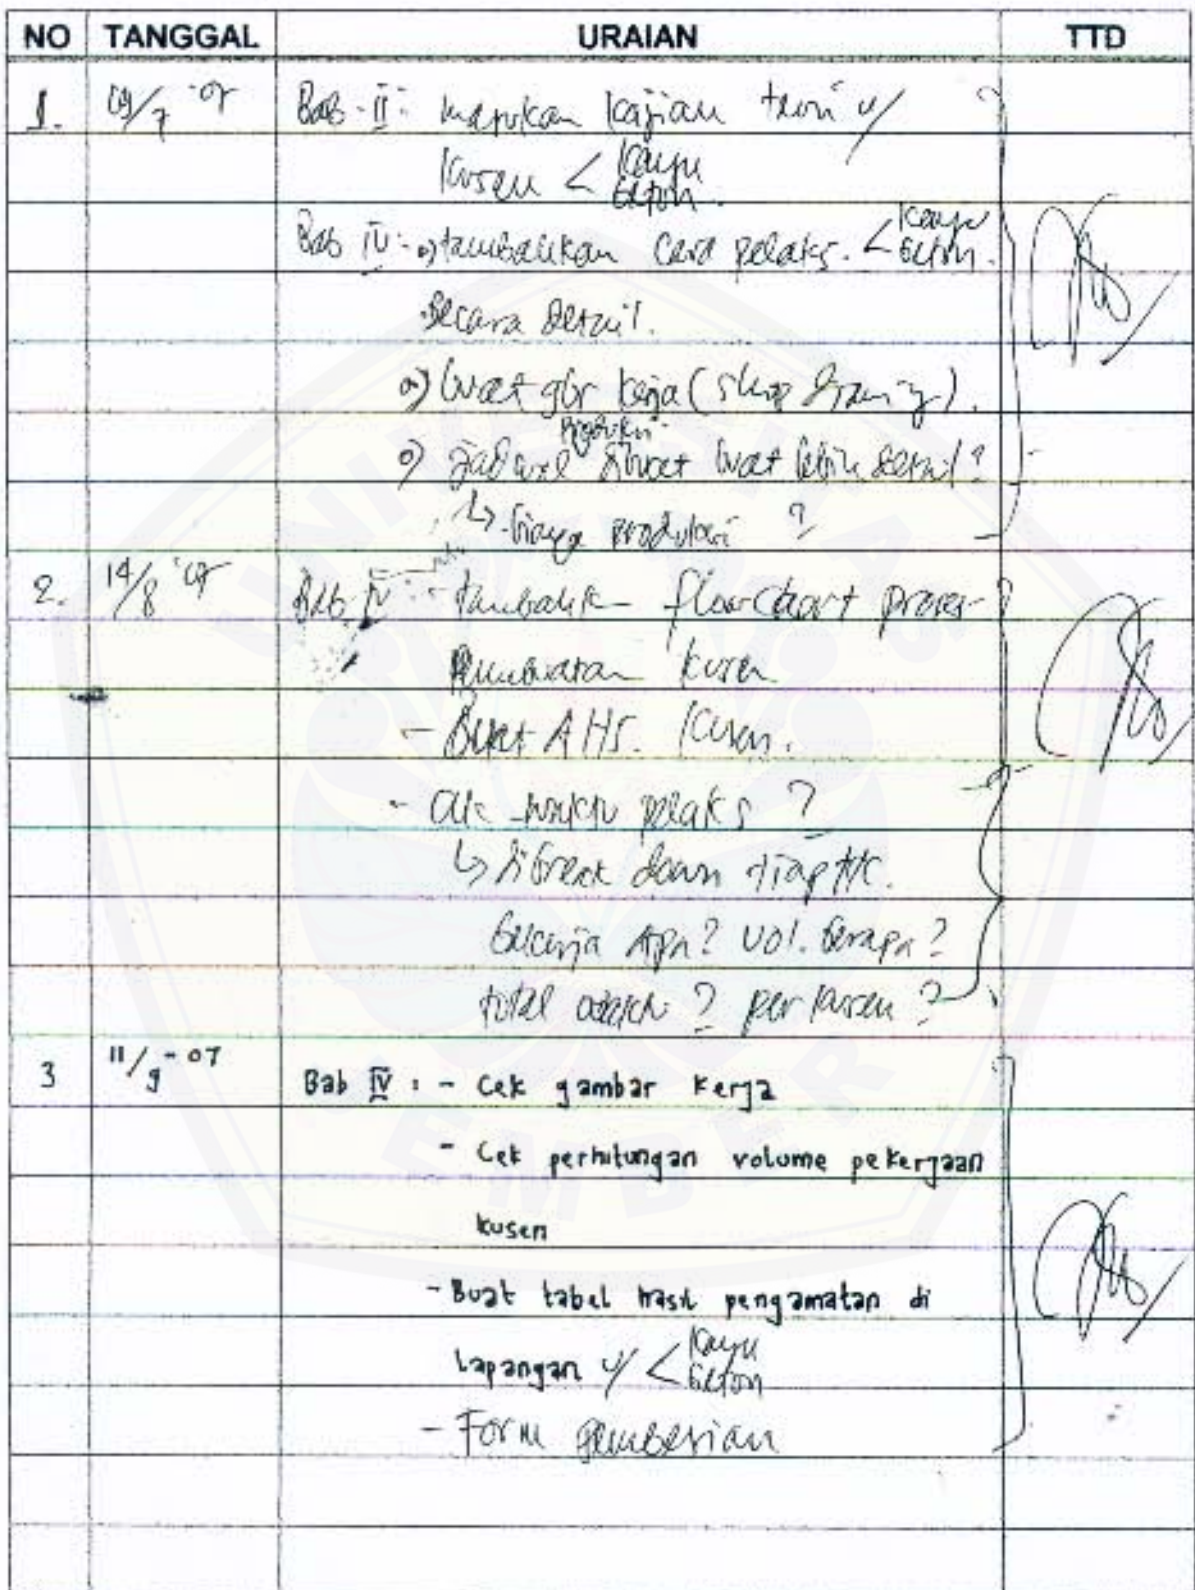 NO TANGGAL URAIAN TTD
1. 09/7 '07 Bab-II: masukan kajian teori u/
kusen < kayu
beton.
Bab IV: o) tambahkan cara pelaks. < kayu
beton.
secara detail.
o) buat gbr kerja (shop drawing).
produksi
o) jadwal dibuat buat lebih detail?
↳ biaya produksi ?
2. 14/8 '07 Bab IV: - tambahk flowchart proses
pembuatan kusen
- Buat AHS. kusen.
- waktu pelaks ?
↳ dibreak down tiap
bekerja apa? vol. berapa?
total ? per kusen ?
3 11/9 - 07 Bab IV : - Cek gambar kerja
- Cek perhitungan volume pekerjaan
kusen
- Buat tabel hasil pengamatan di
lapangan u/ < kayu
beton
- Form
UNIVERSITAS
JEMBER